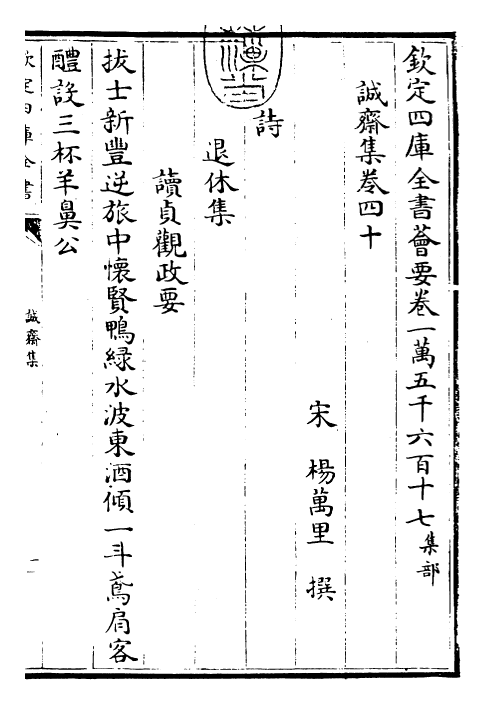 欽定四庫全書薈要卷一萬五千六百十七集部
誠齋集卷四十
宋楊萬里撰
詩
退休集
讀貞觀政要
拔士新豐逆旅中懷賢鴨緑水波東酒傾一斗鳶肩客
醴設三杯羊鼻公
欽定四庫全書
誠齋集
一